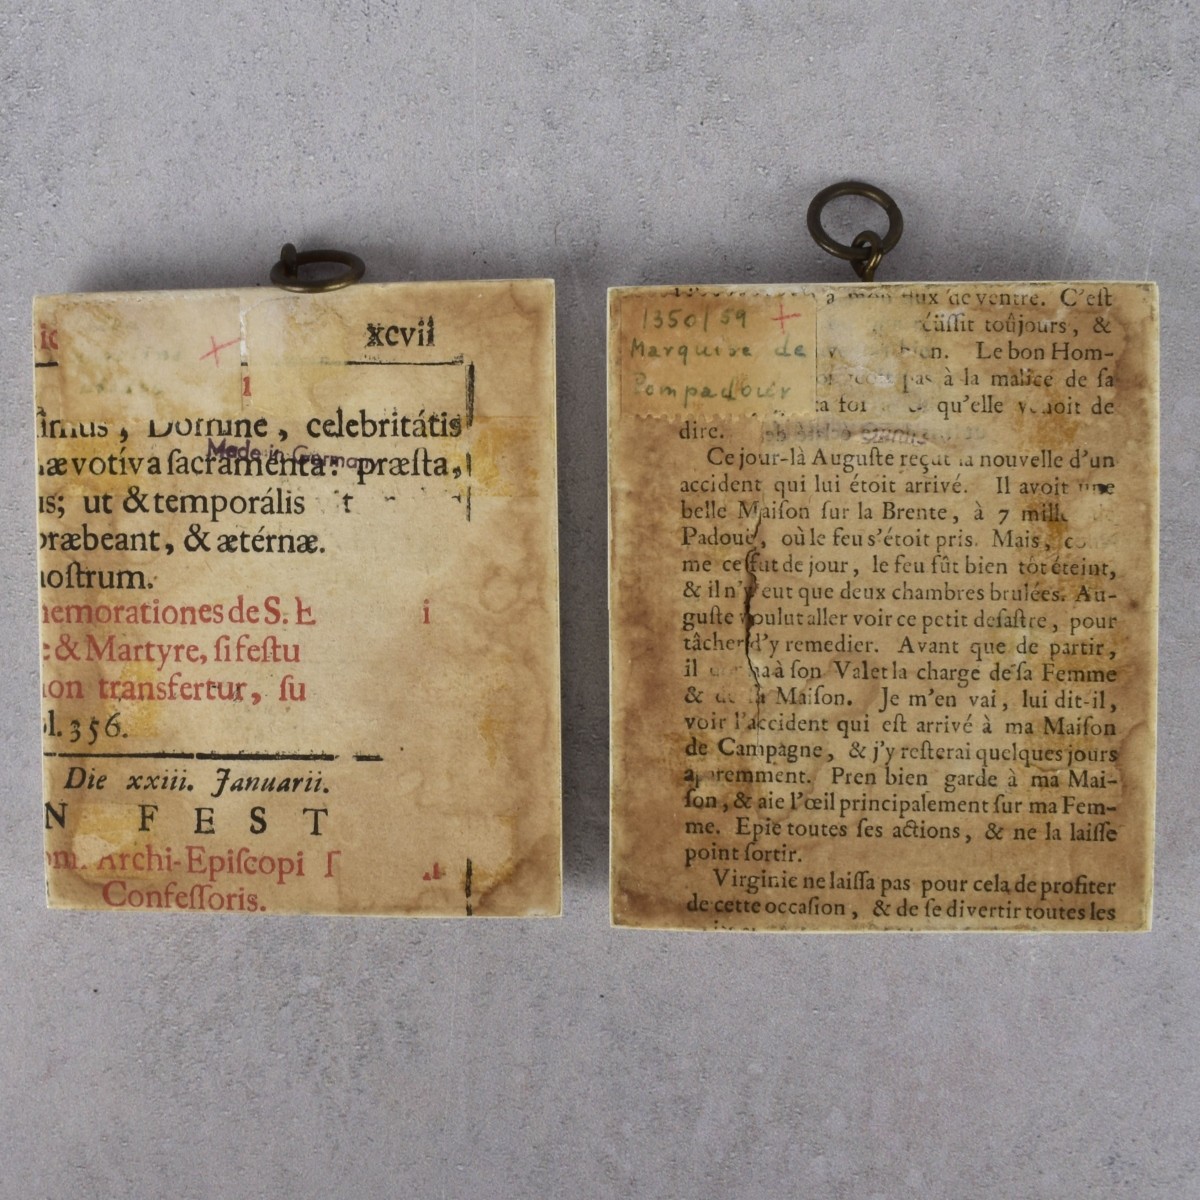 xcvii
1
Domine, celebritátis
votíva sacramenta: præsta,
Made in Germany
us; ut & temporális
præbeant, & ætérnæ.
nostrum.
memorationes de S. E i
& Martyre, si festu
non transfertur, su
l. 356.
Die xxiii. Januarii.
N FEST
Archi-Episcopi
Confessoris.
1350/59
Marquise de
Pompadour
de ventre. C'est
toûjours, &
Le bon Hom-
pas à la malice de sa
qu'elle venoit de
dire.
Ce jour-là Auguste reçut la nouvelle d'un
accident qui lui étoit arrivé. Il avoit une
belle Maison sur la Brente, à 7
Padouë, où le feu s'étoit pris. Mais,
me ce fut de jour, le feu fût bien tôt éteint,
& il n'y eut que deux chambres brulées. Au-
guste voulut aller voir ce petit desastre, pour
tâcher d'y remedier. Avant que de partir,
il à son Valet la charge de sa Femme
& de sa Maison. Je m'en vai, lui dit-il,
voir l'accident qui est arrivé à ma Maison
de Campagne, & j'y resterai quelques jours
apparemment. Pren bien garde à ma Mai-
son, & aie l'œil principalement sur ma Fem-
me. Epie toutes ses actions, & ne la laisse
point sortir.
Virginie ne laissa pas pour cela de profiter
de cette occasion, & de se divertir toutes les